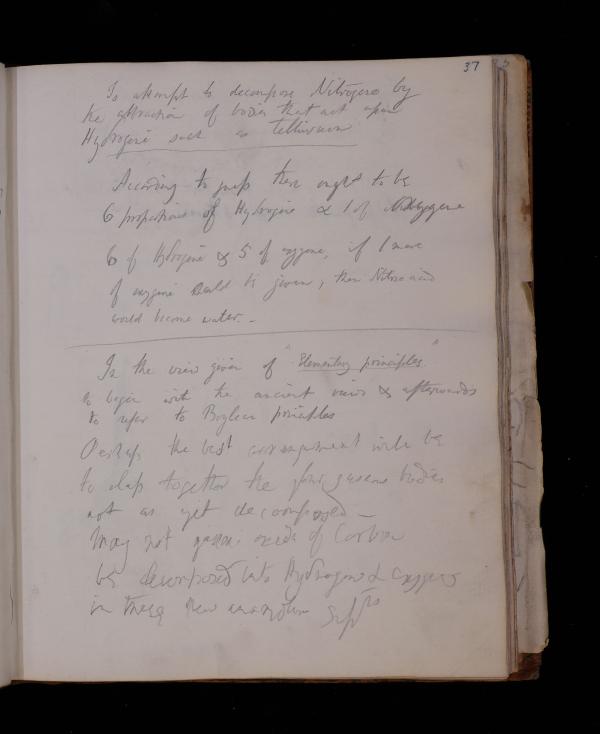 37
To attempt to decompose Nitrogene by
the attraction of bodies that act upon
Hydrogene such as tellurium
According to this there ought to be
6 proportions of Hydrogene & 1 of oxygene
6 of Hydrogene & 5 of oxygene, if 1 more
of oxygene could be given, then Nitrous acid
would become water. -
In the view given of "Elementary principles"
to begin with the ancient views & afterwards
to refer to Boylean principles
Perhaps the best arrangement will be
to class together the four gaseous bodies
not as yet decomposed -
May not gaseous oxide of Carbon
be decomposed into Hydrogene & oxygene
in these new